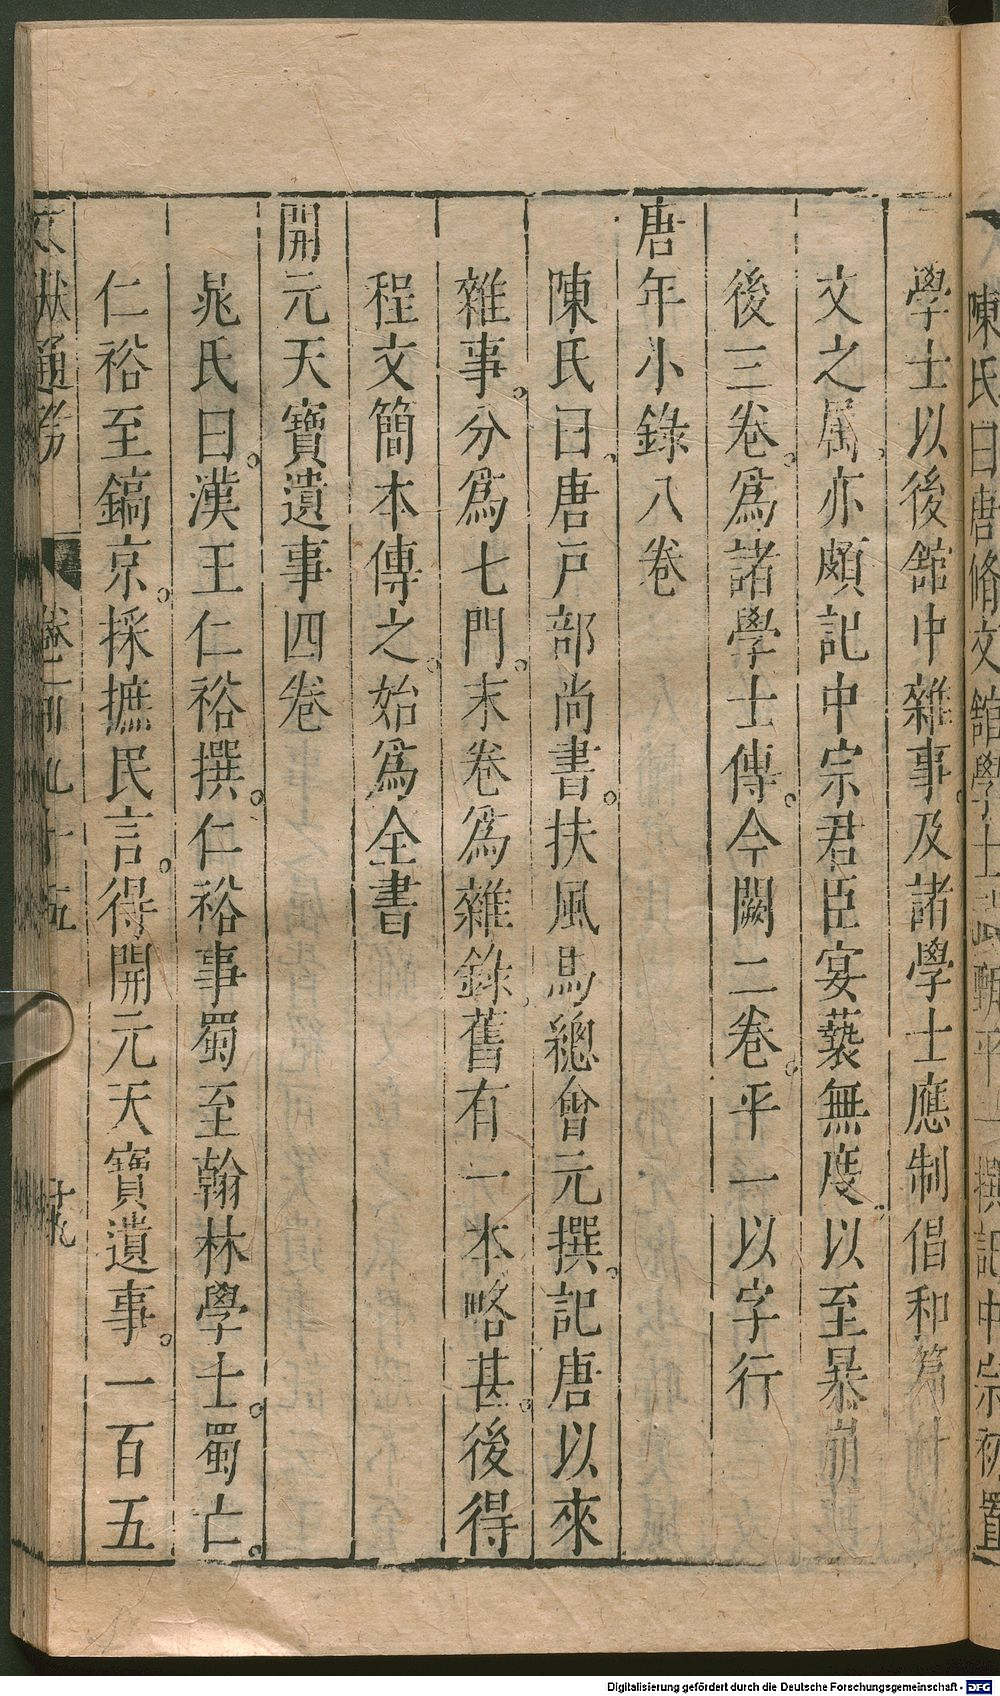 陳氏曰唐修文館學士武甄平一撰記中宗初置
學士以後館中雜事及諸學士應制倡和篇什
文之屬亦頗記中宗君臣宴褻無度以至暴崩
後三卷爲諸學士傳今闕二卷平一以字行
唐年小錄八卷
陳氏曰唐戸部尚書扶風馬總會元撰記唐以來
雜事分爲七門末卷爲雜錄舊有一本略甚後得
程文簡本傳之始爲全書
開元天寶遺事四卷
晁氏曰漢王仁裕撰仁裕事蜀至翰林學士蜀亡
仁裕至鎬京採摭民言得開元天寶遺事一百五
文獻通考 卷一百九十五
Digitalisierung gefördert durch die Deutsche Forschungsgemeinschaft - DFG